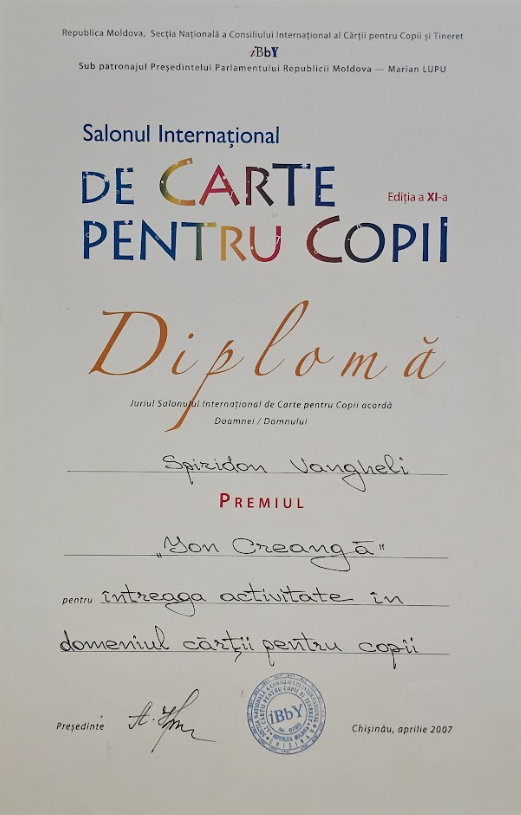 Republica Moldova, Secția Națională a Consiliului Internațional al Cărții pentru Copii și Tineret
iBbY
Sub patronajul Președintelui Parlamentului Republicii Moldova — Marian LUPU
Salonul Internațional
DE CARTE
Ediția a XI-a
PENTRU COPII
Diplomă
Juriul Salonului Internațional de Carte pentru Copii acordă
Doamnei / Domnului
Spiridon Vangheli
PREMIUL
„Ion Creangă"
pentru întreaga activitate în
domeniul cărții pentru copii
Președinte
iBbY
Chișinău, aprilie 2007